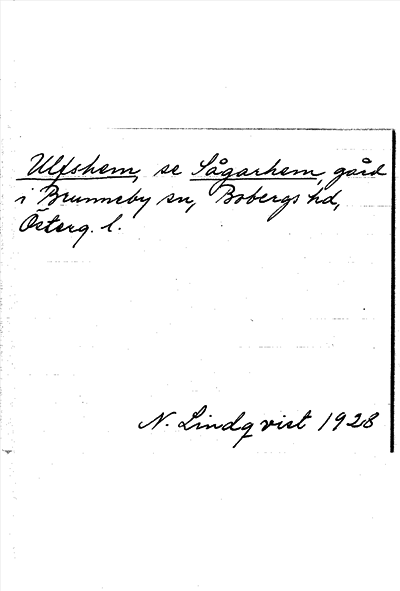 Ulfshem, se Sågarhem, gård
i Brunneby sn, Bobergs hd,
Österg. l.
N. Lindqvist 1928